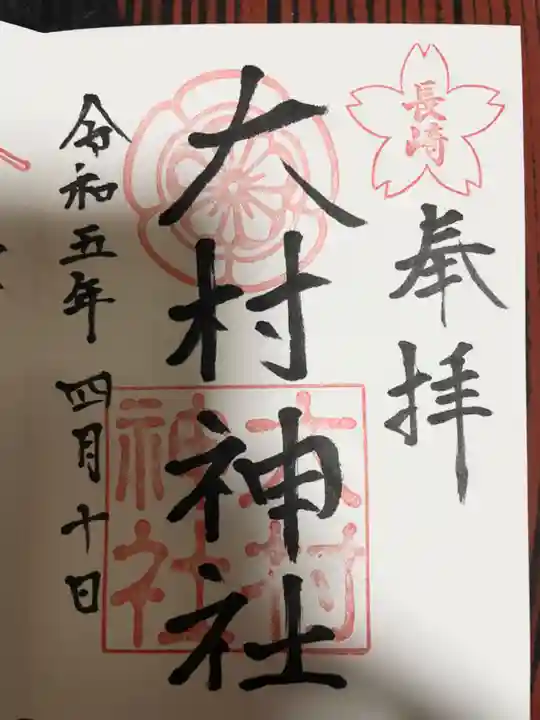 長崎
奉拝
大村神社
大村
神社
令和五年四月十日